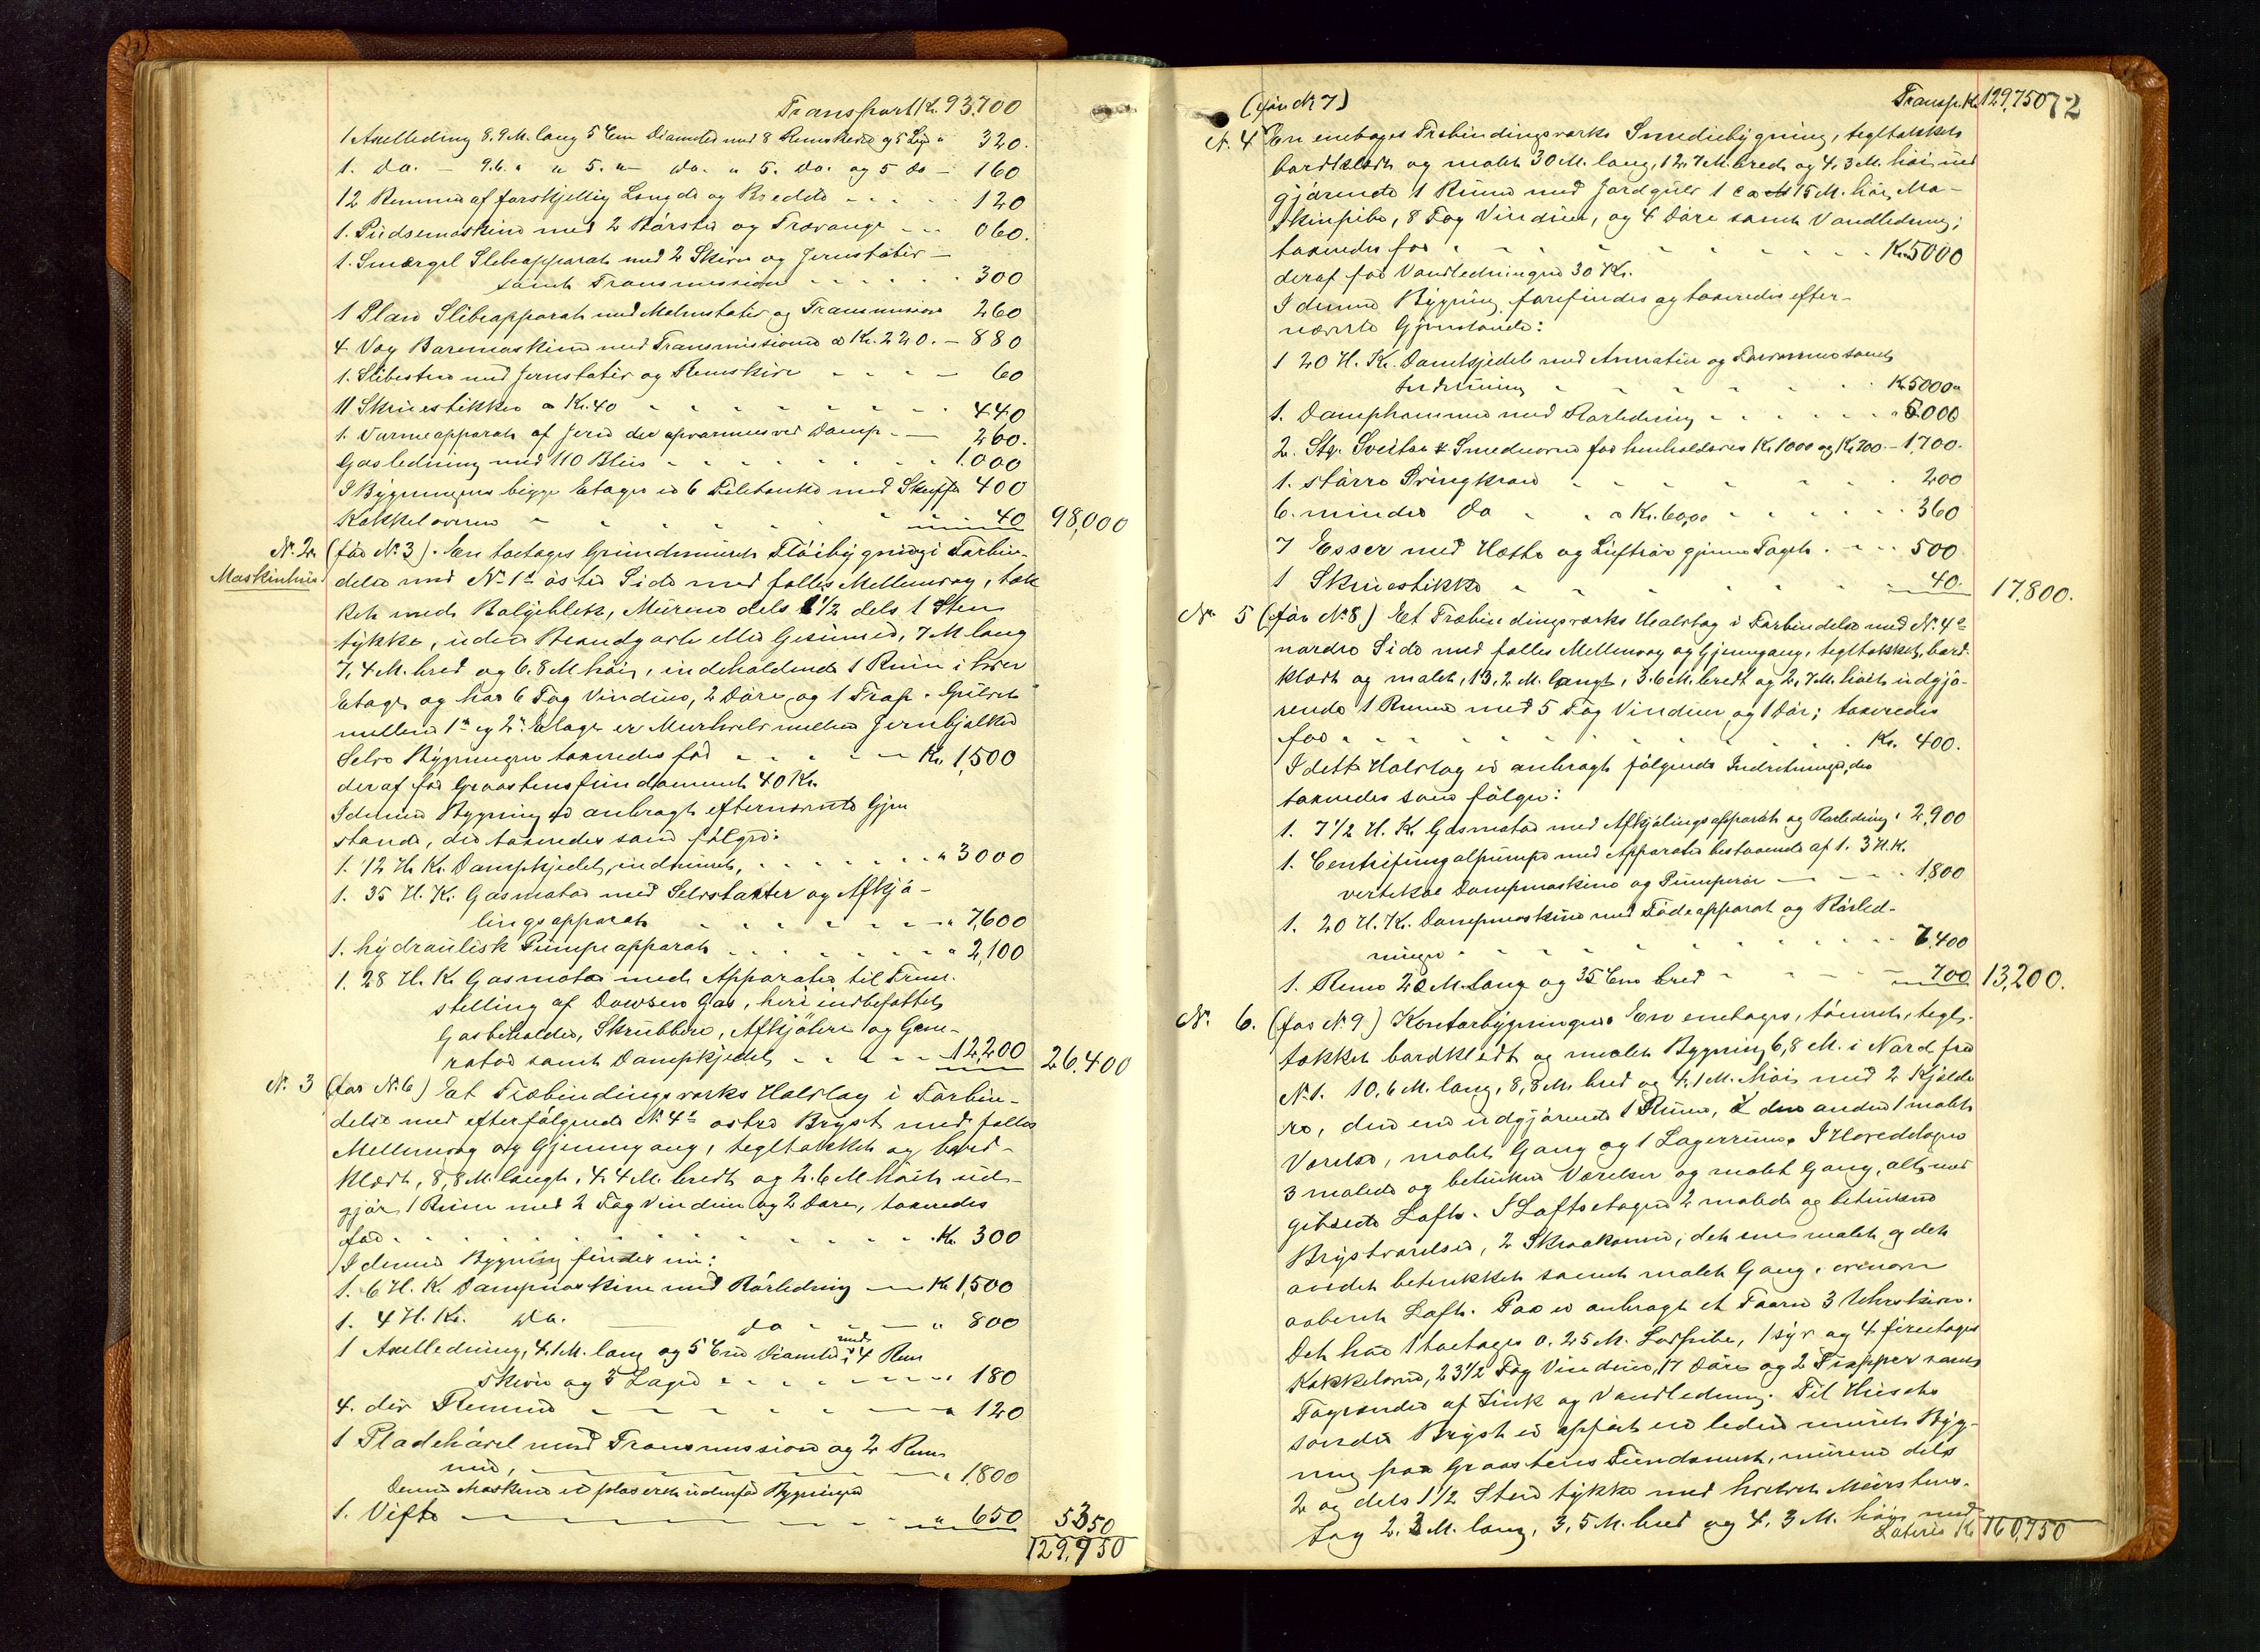 Transport Kr. 93,700
1 Axelledning 8.9 M. lang 5 Cm Diameter med 8 Remskiver og 5 Lag " 320.
1. do. — 9.6. " " 5. " do. " 5. do. og 5 do — 160
12 Remmer af forskjellig Længde og Bredde - - - - 120
1. Pudsemaskine med 2 Børster og Trævange - - - 060.
1. Smergel Slibeapparat med 2 Skiver og Jernstativ —
samt Transmission - - - - - - 300
1 Plan Slibeapparat med Malmstativ og Transmission 260
4 Væg Boremaskiner med Transmissioner a Kr. 220. — 880
1. Slibesten med Jernstativ og Remskive - - - - 60
11 Skruestikker a Kr. 40 - - - - - - - 440
1. Varmeapparat af Jern der opvarmes ved Damp - — 260.
Gasledning med 110 Blus - - - - - - - 1.000
I Bygningens begge Etager er 6 Filebænke med Skuffer 400
Kakkelovne - - - - - - 40 98,000
No. 2. (før No. 3). En toetages Grundmuret Fløibygning i Forbin-
Maskinhus delse med No. 1s østre Side med fælles Mellemvæg, tæk
ket med Bølgeblik, Murene dels 1 1/2 dels 1 Sten
tykke, uden Brandgavle eller Gesimser, 7 M lang
7,4 M. bred og 6.8 M høi, indeholdende 1 Rum i hver
Etage og har 6 Fag Vinduer, 2 Døre og 1 Trap. Gulvet
mellem 1ste og 2den Etage er Murhvelv mellem Jernbjælker
Selve Bygningen taxeredes for - - - - — Kr. 1,500
deraf for Graastensfundament 40 Kr.
I denne Bygning er anbragt efternævnte Gjen
stande, der taxeredes som følger:
1. 12 H. Kr. Dampkjedel, indmuret, - - - - - - " 3000
1. 35 H. Kr. Gasmotor med Selvstarter og Afkjø-
lingsapparat - - - - - - — " 7,600
1. hydraulisk Pumpeapparat - - - - - - - " 2,100
1. 28 H. Kr. Gasmotor med Apparater til Frem-
stilling af Dowson Gas, heri indbefattet
Gasbeholder, Skrubbere, Afkjølere og Gene-
rator samt Dampkjedel - - - - - 12,200 26.400
No. 3 (før No. 6) Et Træbindingsverks Halvtag i Forbin-
delse med efterfølgende No. 4s østre Bryst med fælles
Mellemvæg og Gjennemgang, tegltækket og bord-
klædt, 8,8 M. langt, 4,4 M. bredt og 2.6 M høit ud-
gjør 1 Rum med 2 Fag Vinduer og 2 Døre, taxeredes
for - - - - - - - - - - Kr. 300
I denne Bygning findes nu:
1. 6 H. Kr. Dampmaskine med Rørledning — Kr 1,500
1. 4 H. Kr. do. — do - - — " 800
1 Axelledning, 4.1 M. lang og 5 Cm Diameter, med 4 Rem
skiver og 5 Lager - - - - - - - " 180
4. div Remmer - — - - - — " 120
1 Pladehøvel med Transmission og 2 Rem
mer, — - — - — - — " 1,800
Denne Maskine er placeret udenfor Bygningen
1. Vifte — - — - - " 650 5350
129,750
(før No 7) Transp. Kr. 129,750 72
N. 4 En enetages Træbindingsværks Smediebygning, tegltækket
bordklædt og malet 30 M. lang, 12,7 M. bred og 4,3 M. høi, ud
gjørende 1 Rum med Jordgulv 1 ca 15 M. høi Ma-
skinpibe, 8 Fag Vinduer, og 4 Døre samt Vandledning;
taxeredes for - - - - - - - Kr. 5000
deraf for Vandledningen 30 Kr.
I denne Bygning forefindes og taxeredes efter-
nævnte Gjenstande:
1 20 H. Kr. Dampkjedel med Armatur og Forvarmer samt
Indmuring - - - - - - - Kr. 5000
1. Damphammer med Rørledning - - - - - - " 5000
2. Stk. Sveise & Smedeovne for henholdsvis Kr. 1000 og Kr. 700. — 1,700.
1. større Svingkran - - - - - - 200
6. mindre do - - a Kr. 60,00 - - - - - - 360
7 Esser med Hætte og Luftrør gjennem Taget - - - 500
1 Skruestikke - - - - - - 40. 17,800.
No. 5 (før No. 8) Et Træbindingsværks Halvtag i Forbindelse med No. 4s
nordre Side med fælles Mellemvæg og Gjennemgang, tegltækket, bord-
klædt og malet, 13,2 M. langt, 3.6 M. bredt og 2,7 M. høit udgjø-
rende 1 Rum med 5 Fag Vinduer og 1 Dør; taxeredes
for - - - - - - - - - Kr. 400.
I dette Halvtag er anbragt følgende Indretninger, der
taxeredes som følger:
1. 7 1/2 H. Kr. Gasmotor med Afkjølingsapparat og Rørledning " 2,900
1. Centrifugalpumpe med Apparater bestaaende af 1. 3 H. K.
vertikal Dampmaskine og Pumperør — - - - - 1,800
1. 20 H. Kr. Dampmaskine med Fødeapparat og Rørled-
ninger - - - - - - - - 7,400
1. Rem 28 M. lang og 35 Cm bred - - - — 700 13,200.
No. 6. (før No. 9) Kontorbygningen. En enetages, tømret, tegl-
tækket bordklædt og malet Bygning 6,8 M. i Nord fra
No. 1. 10,6 M. lang, 8,8 M. bred og 4,1 M. høi med 2 Kjælde
re, den ene udgjørende 1 Rum, den anden 1 malet
Værelse, malet Gang og 1 Lagerrum. I Hovedetagen
3 malede og betrukne Værelser og malet Gang, alt med
gibsede Lofte. I Loftsetagen 2 malede og betrukne
Brystværelser, 2 Skraakamre, det ene malet og det
andet betrukket samt malet Gang, ovenover
aabent Loft. Paa er anbragt et Taarn 3 Uhrskiver.
Det har 1 toetages a. 25 M. Løspibe, 1 syv og 4 fireetages
Kakkelovne, 23 1/2 Fag Vinduer, 17 Døre og 2 Trapper samt
Tagrender af Zink og Vandledning. Til Husets
søndre Bryst er opført en liden muret Byg-
ning paa Graastens Fundament, murene dels
2 og dels 1 1/2 Sten tykke med hvelvet Murstens-
tag 2,3 M. lang, 3,5 M. bred og 4,3 M. høi med
Lateris Kr 160,750